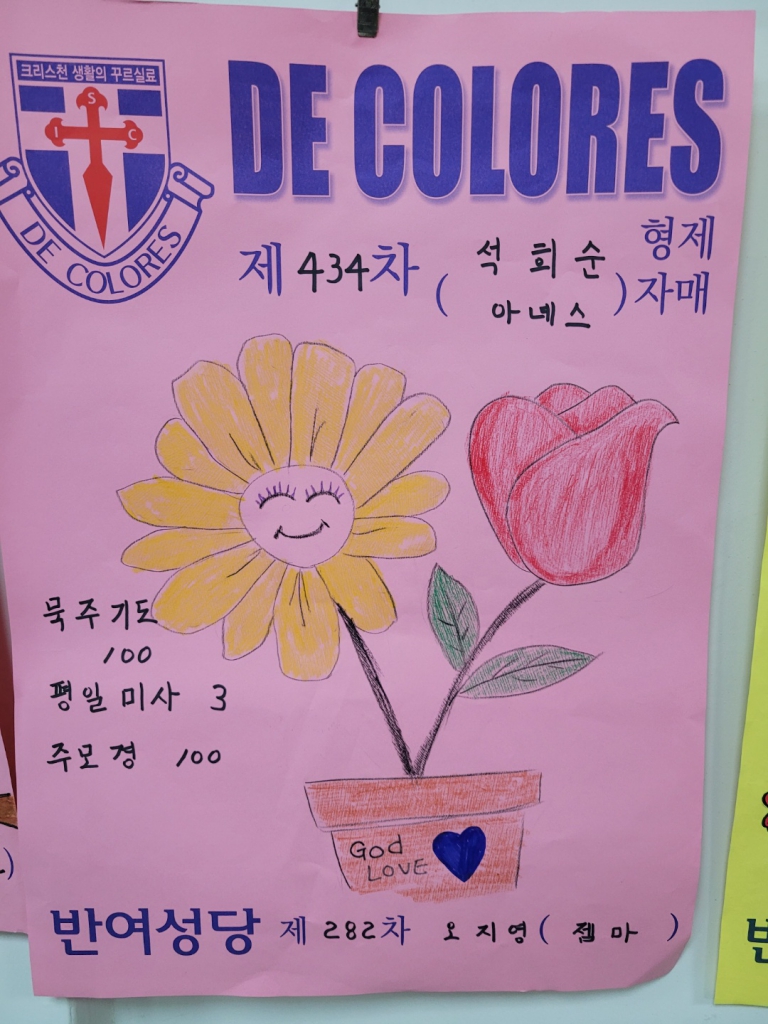 크리스천 생활의 꾸르실료
S
I C
DE COLORES
DE COLORES
제 434차 ( 석 회 순 아네스 ) 형제 자매
묵주기도
100
평일미사 3
주모경 100
God
LOVE
반여성당 제 282차 오지영 ( 젬마 )